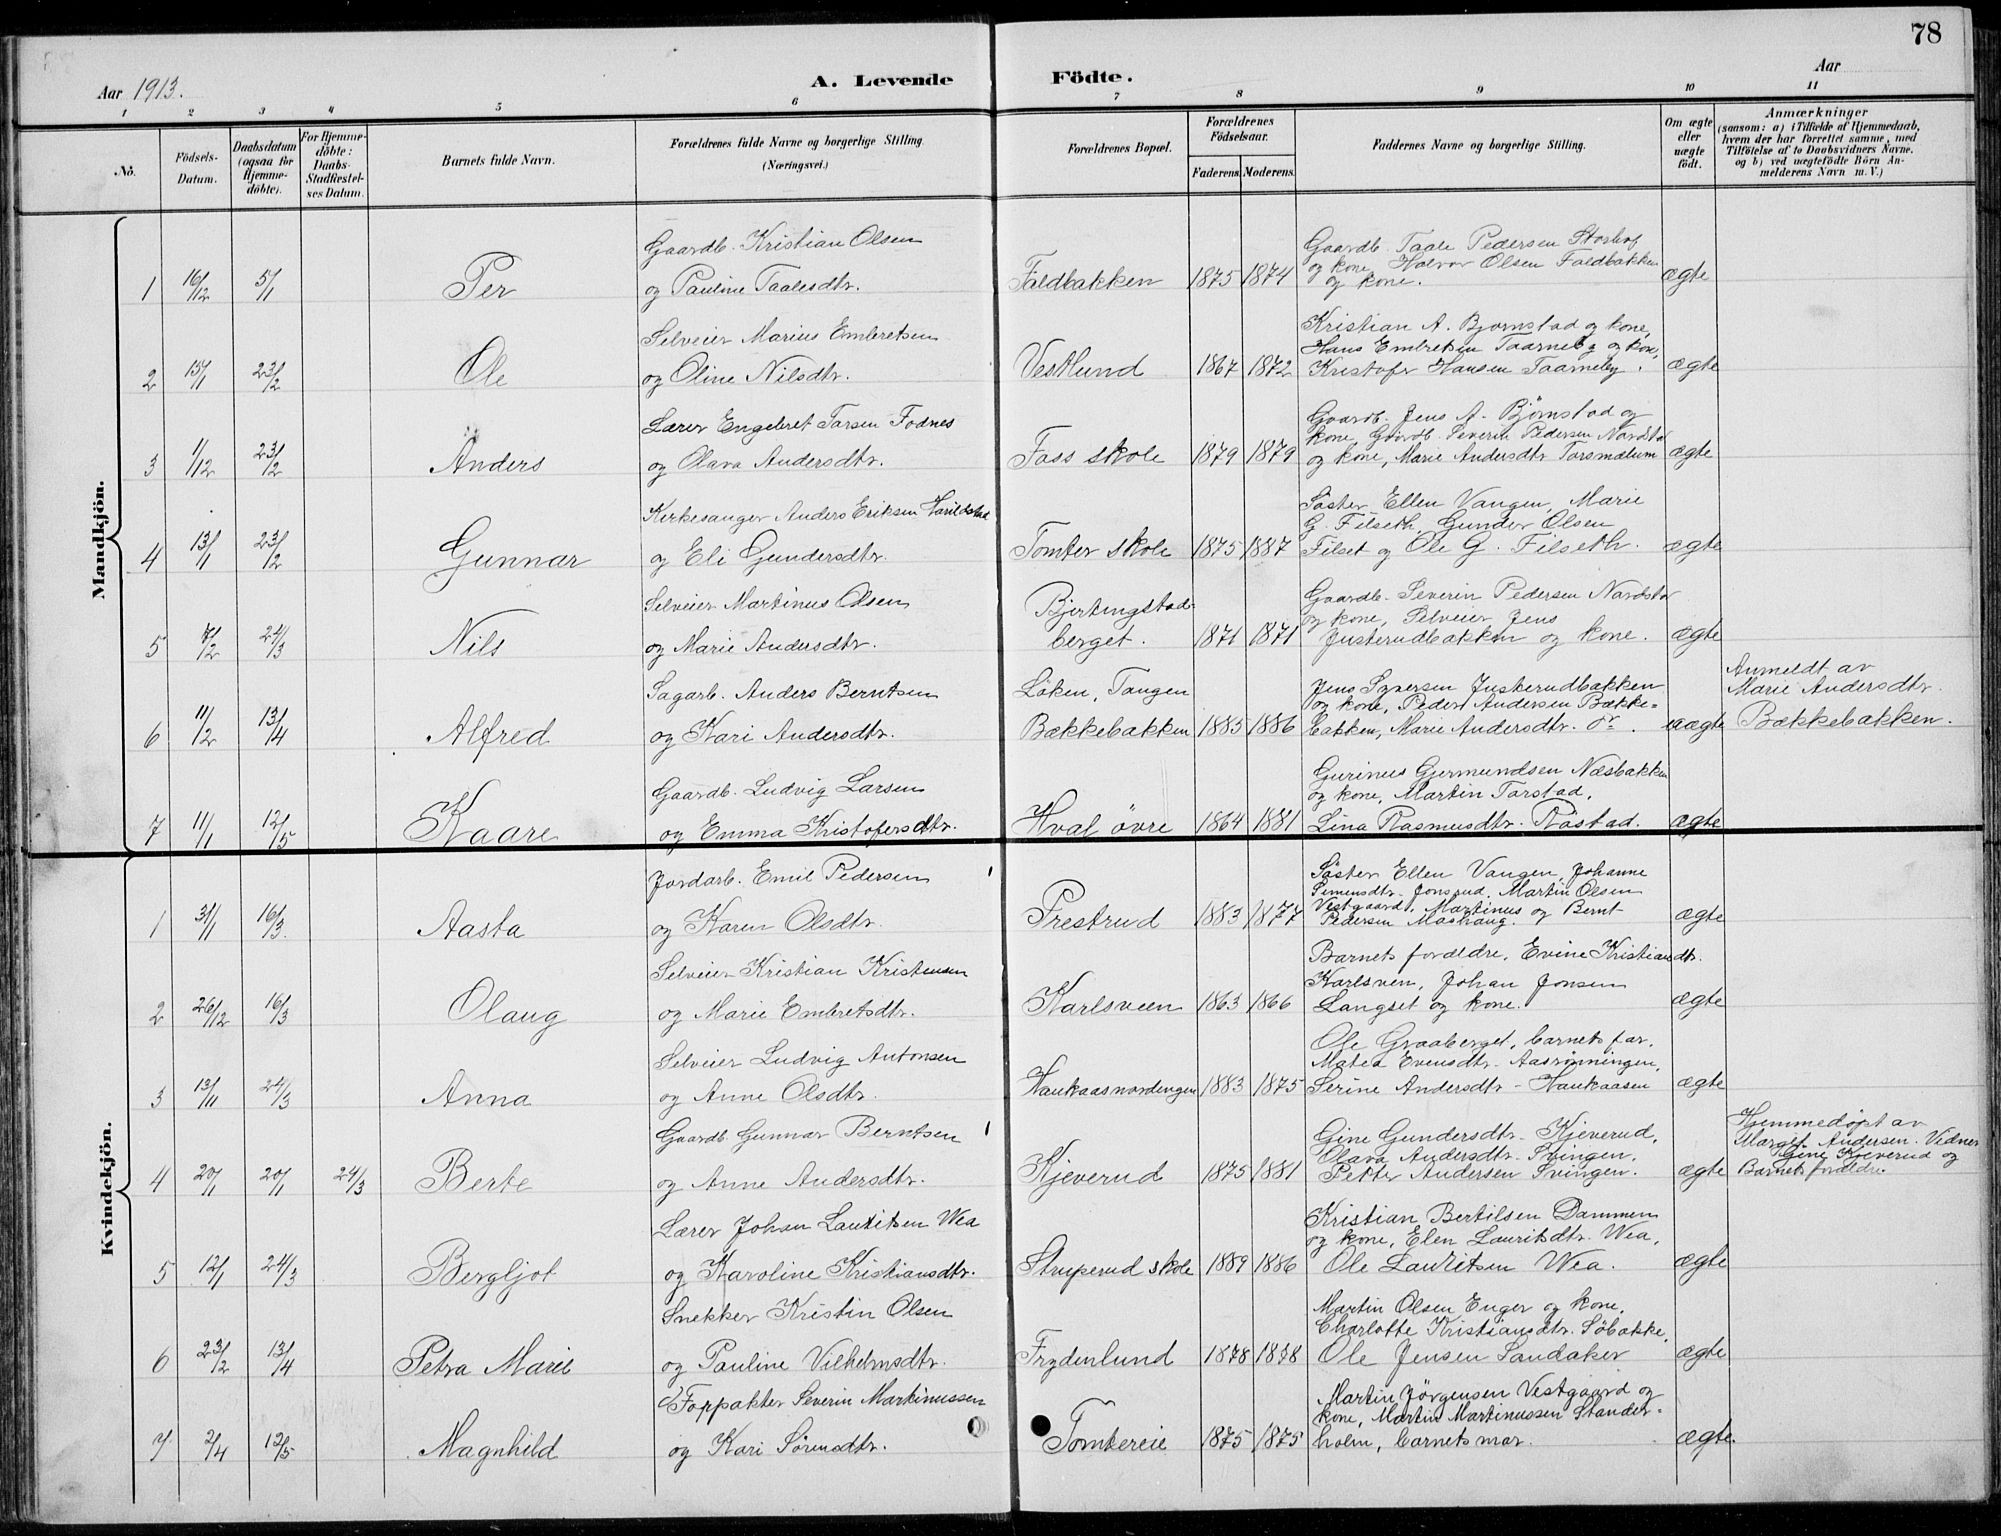 78
Aar 1913.
A. Levende Födte.
Aar
1 2 3 4 5 6 7 8 9 10 11
No.
Födsels-Datum.
Daabsdatum (ogsaa for Hjemme-döbte).
For Hjemme-döbte: Daabs-Stadfæstel-ses Datum.
Barnets fulde Navn.
Forældrenes fulde Navne og borgerlige Stilling.
(Næringsvei.)
Forældrenes Bopæl.
Forældrenes Födselsaar.
Faderens. Moderens.
Faddernes Navne og borgerlige Stilling.
Om ægte eller uægte födt.
Anmærkninger
(saasom: a) i Tilfælde af Hjemmedaab, hvem der har forrettet samme, med Tilföielse af to Daabsvidners Navne. og b) ved uægtefödte Börn An-melderens Navn m. V.)
Mandkjön.
Gaardb. Kristian Olsen
Gaardb. Taale Pedersen Storhof
og kone, Halvor Olsen Faldbakken
1 16/12 5/1 Per og Pauline Taalesdtr. Faldbakken 1875 1874 og kone. ægte
Selveier Marius Embretsen
Kristian A. Bjørnstad og kone,
Hans Embretsen Taarneby og kone,
2 15/1 23/2 Ole og Oline Nilsdtr. Vestlund 1867 1872 Kristofer Hansen Taarneby. ægte
Lærer Engebret Tarsen Fodnes
Gaardb. Jens A. Bjørnstad og
kone, Gaardb. Severin Pedersen Nordstor
3 1/12 23/2 Anders og Olava Andersdtr. Fass skole 1879 1879 og kone, Marie Andersdtr Torsmælum ægte
Kirkesanger Anders Eriksen Harildstad
Søster Ellen Vangen, Marie
G. Filseth, Gunder Olsen
4 13/1 23/2 Gunnar og Eli Gundersdtr. Tomter skole 1875 1887 Filset og Ole G. Filseth. ægte
Selveier Martinus Olsen
Bjertingstad-
Gaardb. Severin Pedersen Nordstor
og kone, Selveier Jens
5 7/2 24/3 Nils og Marie Andersdtr. berget. 1871 1871 Justerudbakken og kone. ægte
Sagarb. Anders Berntsen
Løken, Tangen
Jens Syversen Justerudbakken
og kone, Peder Andersen Bække-
Anmeldt av
Marie Andersdtr.
6 11/2 13/4 Alfred og Kari Andersdtr. Bækkebakken 1885 1886 bakken, Marie Andersdtr. do. uægte Bækkebakken.
Gaardb. Ludvig Larsen
Gurinus Gjermundsen Næsbakken
og kone, Martin Torstad,
7 11/1 12/5 Kaare og Emma Kristofersdtr. Hval øvre 1864 1881 Lina Rasmusdtr. Råstad. ægte
Kvindekjön.
Jordarb. Emil Pedersen
Søster Ellen Vangen, Johanne
Simensdtr. Jonsrud, Martin Olsen
Vestgaard, Martinus og Bernt
1 31/1 16/3 Aasta og Karen Olsdtr. Prestrud 1883 1877 Pedersen Moshaug. ægte
Selveier Kristian Kristensen
Barnets forældre, Evine Kristiansdtr.
Karlsven, Johan Jonsen
2 26/12 16/3 Olaug og Marie Embretsdtr. Karlsveen 1863 1866 Langset og kone. ægte
Selveier Ludvig Antonsen
Ole Graaberget, barnets far,
Matea Evensdtr. Aasrønningen,
3 13/11 24/3 Anna og Anne Olsdtr. Haukaasnordengen 1883 1875 Serine Andersdtr - Haukaasen ægte
Gaardb. Gunnar Berntsen
Gine Gundersdtr. Kjeverud,
Olava Andersdtr. Svingen,
Hjemmedøpt av
Marget Andersen. Vidner
Gine Kjeverud og
4 20/1 20/1 24/3 Berte og Anne Andersdtr. Kjeverud 1875 1881 Petter Andersen Svingen. ægte Barnets forældre.
Lærer Johan Lauritsen Wea
Kristian Bertilsen Dammen
og kone, Elen Lauritsdtr. Wea,
5 12/1 24/3 Bergljot og Karoline Kristiansdtr. Struperud skole 1889 1886 Ole Lauritsen Wea. ægte
Snekker Kristin Olsen
Martin Olsen Enger og kone,
Charlotte Kristiansdtr. Søbakke,
6 23/2 13/4 Petra Marie og Pauline Vilhelmsdtr. Frydenlund 1878 Ole Jensen Sandaker ægte
Forpakter Severin Martinussen
Martin Jørgensen Vestgaard og
kone, Martin Martinussen Stander-
7 2/4 12/5 Magnhild og Kari Sørensdtr. Tomtereie 1875 1875 holm, barnets mor. ægte.